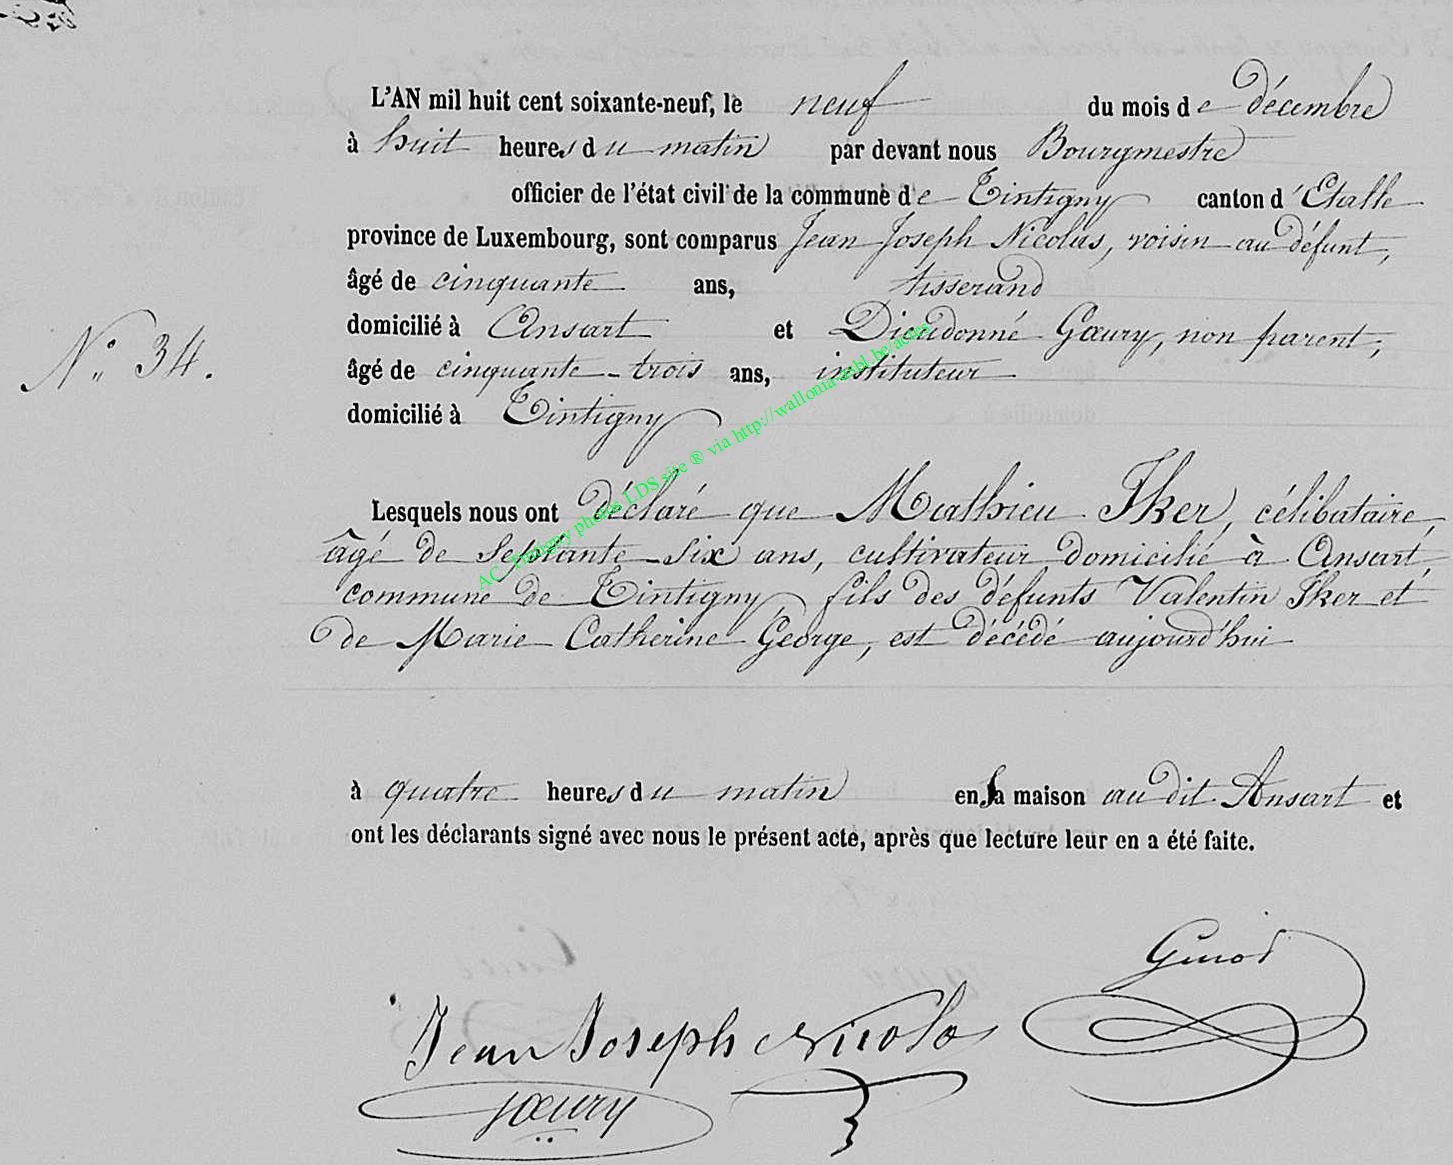 L'AN mil huit cent soixante-neuf, le neuf du mois de décembre
à huit heures du matin par devant nous Bourgmestre
officier de l'état civil de la commune de Tintigny canton d'Etalle
province de Luxembourg, sont comparus Jean Joseph Nicolas, voisin au défunt,
âgé de cinquante ans, tisserand
domicilié à Ansart et Dieudonné Gœury, non parent,
N° 34.
âgé de cinquante-trois ans, instituteur
domicilié à Tintigny
Lesquels nous ont déclaré que Mathieu Iker, célibataire,
âgé de septante-six ans, cultivateur domicilié à Ansart,
commune de Tintigny fils des défunts Valentin Iker et
de Marie Catherine George, est décédé aujourd'hui
à quatre heures du matin en sa maison au dit Ansart et
ont les déclarants signé avec nous le présent acte, après que lecture leur en a été faite.
Jean Joseph Nicolas
Gœury
AC Tintigny photos LDS site ® via http://wallonia-asbl.be/actes